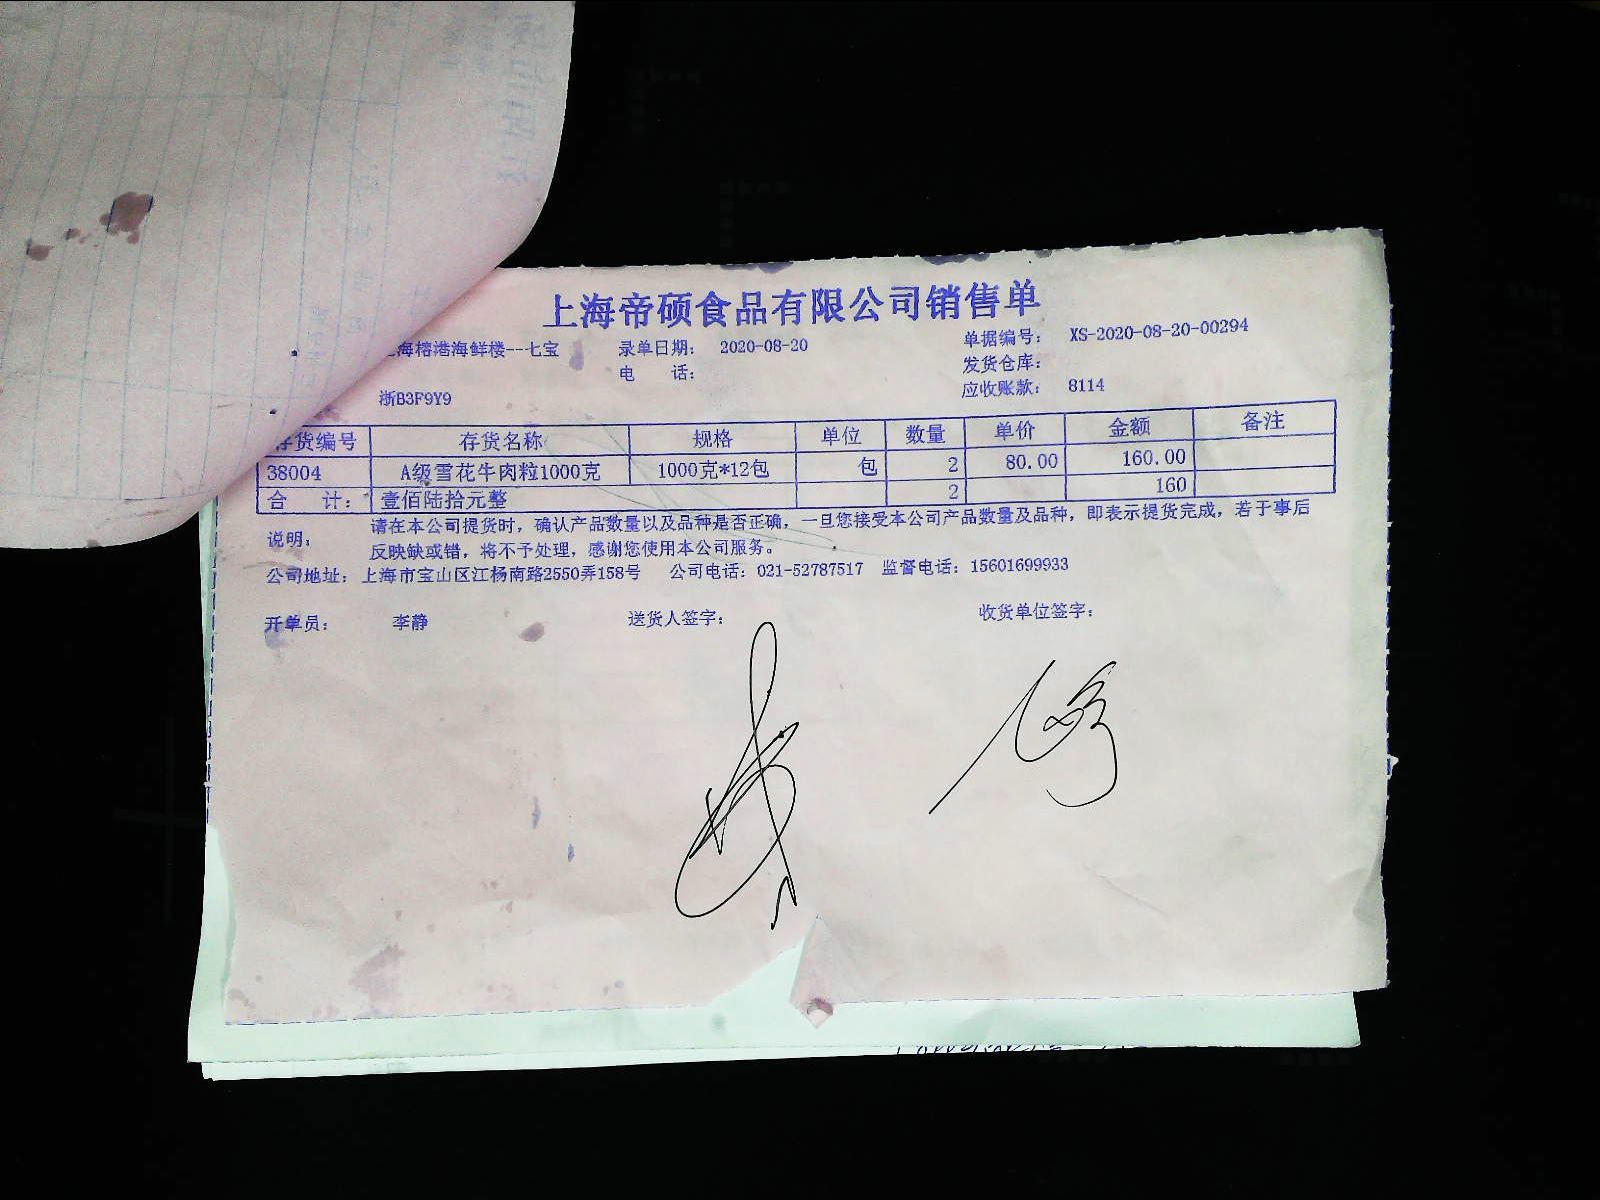 上海帝硕食品有限公司销售单
海榕港海鲜楼--七宝 录单日期： 2020-08-20 单据编号： XS-2020-08-20-00294
电 话： 发货仓库：
浙B3F9Y9 应收账款： 8114
存货编号 存货名称 规格 单位 数量 单价 金额 备注
38004 A级雪花牛肉粒1000克 1000克*12包 包 2 80.00 160.00
合 计： 壹佰陆拾元整 2 160
说明： 请在本公司提货时，确认产品数量以及品种是否正确，一旦您接受本公司产品数量及品种，即表示提货完成，若于事后
反映缺或错，将不予处理，感谢您使用本公司服务。
公司地址： 上海市宝山区江杨南路2550弄158号 公司电话：021-52787517 监督电话：15601699933
开单员： 李静 送货人签字： 收货单位签字：